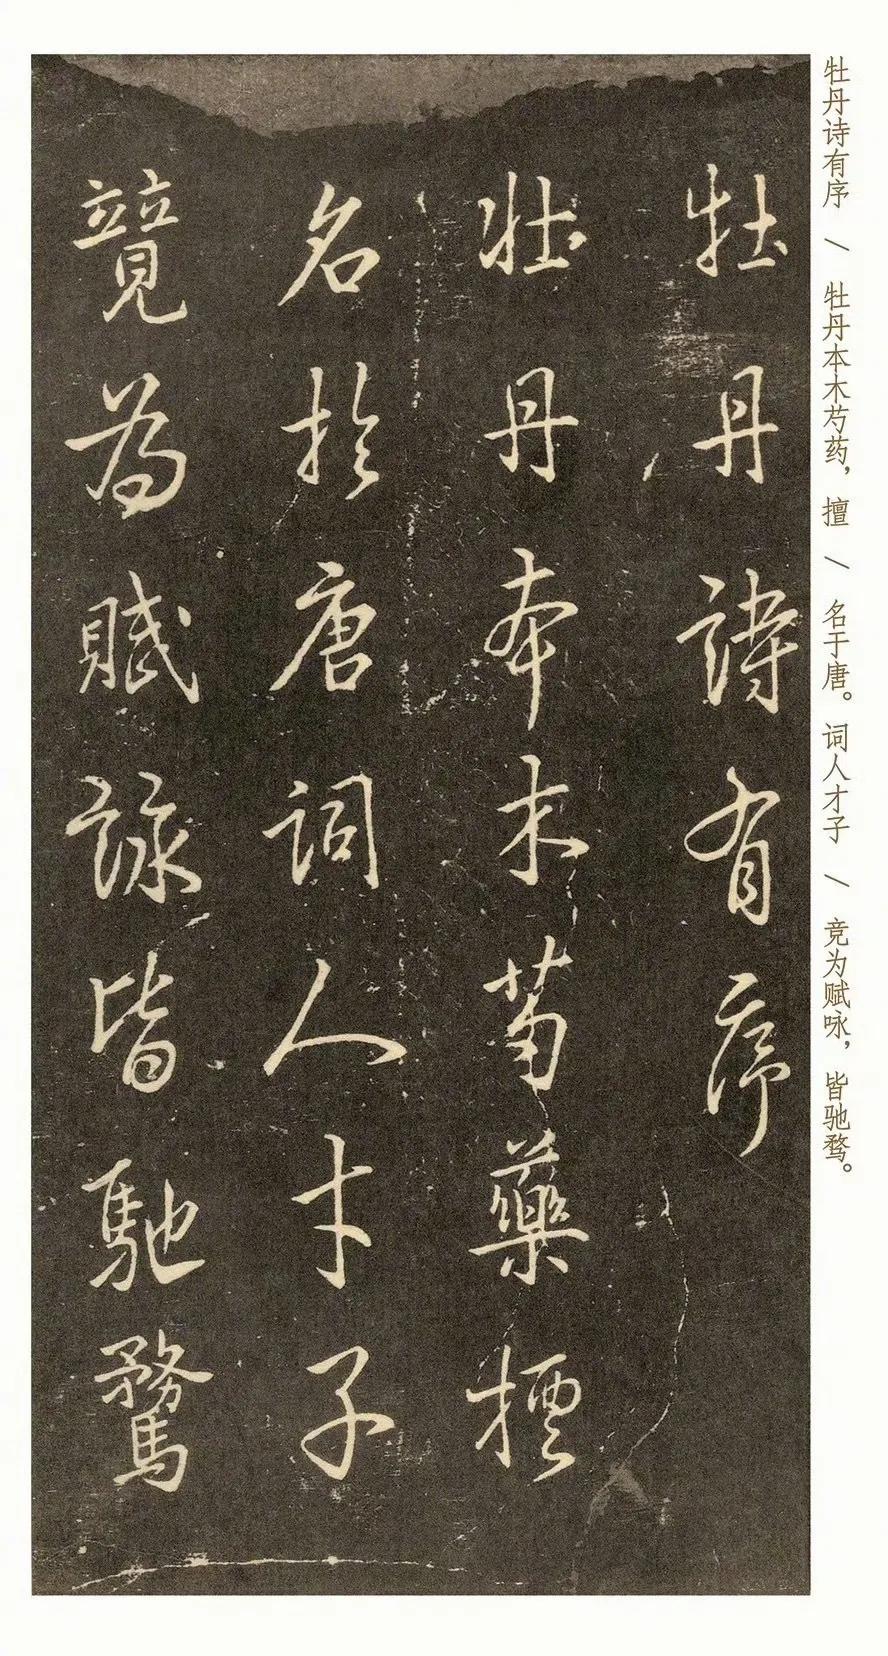 牡丹诗有序 \ 牡丹本木芍药，擅 \ 名于唐。词人才子 \ 竞为赋咏，皆驰骛。
牡丹詩有序
牡丹本木芍藥擅
名於唐詞人才子
競為賦詠皆馳騖